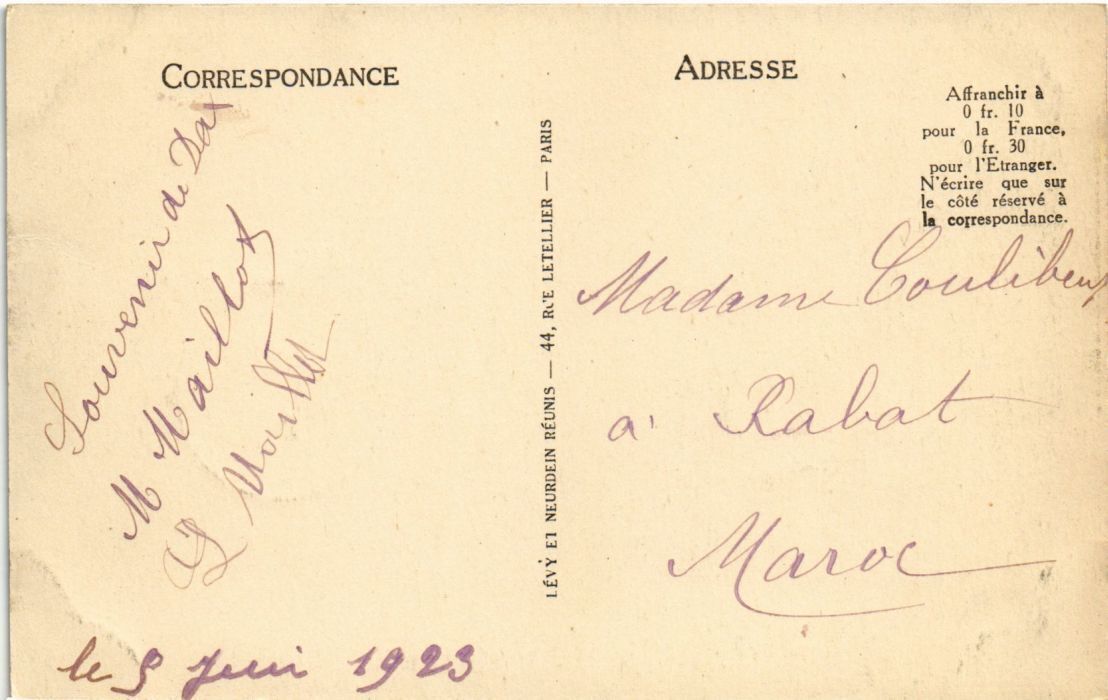 CORRESPONDANCE
Souvenir de Dax
M Maillot
le 5 Juin 1923
LÉVY ET NEURDEIN RÉUNIS — 44, RUE LETELLIER — PARIS
ADRESSE
Affranchir à
0 fr. 10
pour la France,
0 fr. 30
pour l'Etranger.
N'écrire que sur
le côté réservé à
la correspondance.
Madame Coulibeuf
à Rabat
Maroc